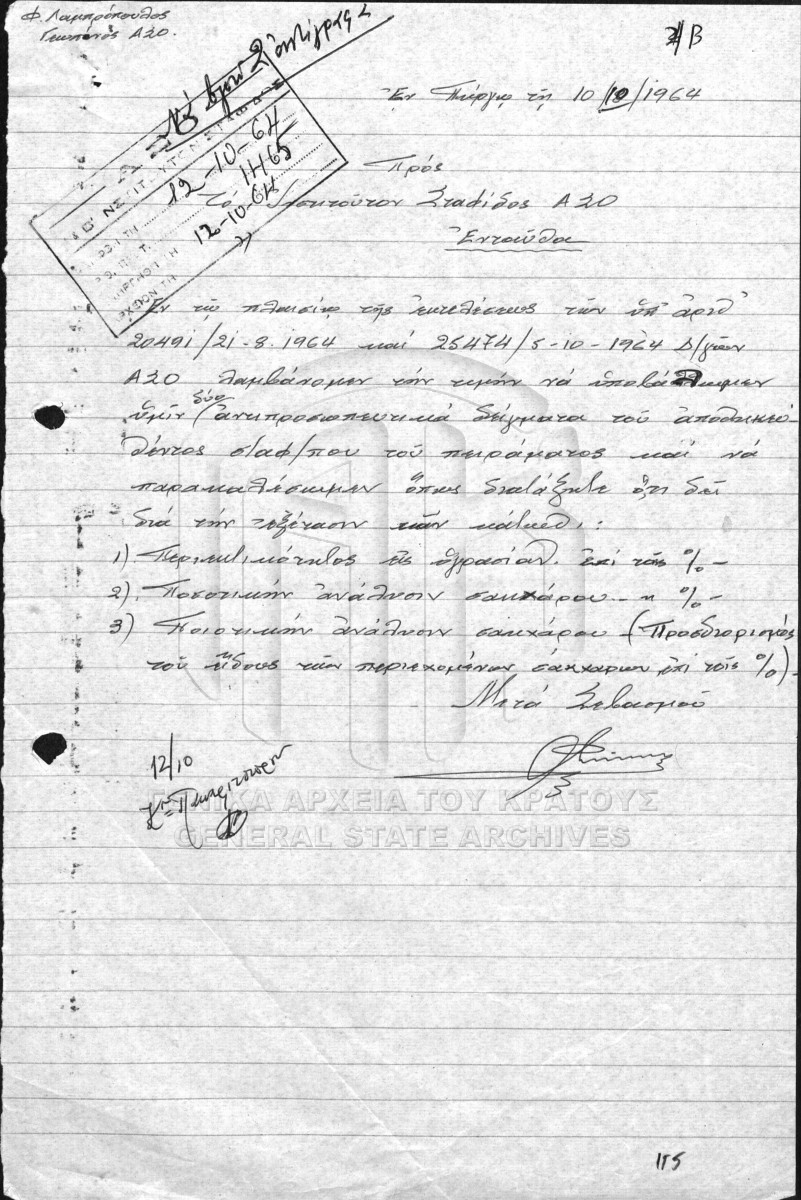 Φ. Λαμπρόπουλος
Γεωπόνος ΑΣΟ.
Β
Νά βγοῦν 2 ἀντίγραφα
Ἐν Πύργῳ τῇ 10/10/1964
12-10-64
1165
12-10-64
Πρός
Τό Ἰνστιτοῦτον Σταφίδος ΑΣΟ
Ἐνταῦθα
Ἐν τῷ πλαισίῳ τῆς ἐκτελέσεως τῶν ὑπ' ἀριθ
20491/21-8.1964 καί 25474/5-10-1964 Δ/γῶν
ΑΣΟ λαμβάνομεν τήν τιμήν νά ὑποβάλωμεν
ὑμῖν δύο ἀντιπροσωπευτικά δείγματα τοῦ ἀποθηκευ-
θέντος σταφ/που τοῦ πειράματος καί νά
παρακαλέσωμεν ὅπως διατάξητε ὅ,τι δεῖ
διά τήν ἐξέτασιν τῶν κάτωθι:
1) Περιεκτικότητος εἰς ὑγρασίαν. ἐπί τοῖς % -
2) Ποσοτικήν ἀνάλυσιν σακχάρου - " % -
3) Ποιοτικήν ἀνάλυσιν σακχάρου - (Προσδιορισμός
τοῦ εἴδους τῶν περιεχομένων σακχάρων ἐπί τοῖς %) -
Μετά Σεβασμοῦ
12/10
ΓΕΝΙΚΑ ΑΡΧΕΙΑ ΤΟΥ ΚΡΑΤΟΥΣ
GENERAL STATE ARCHIVES
115